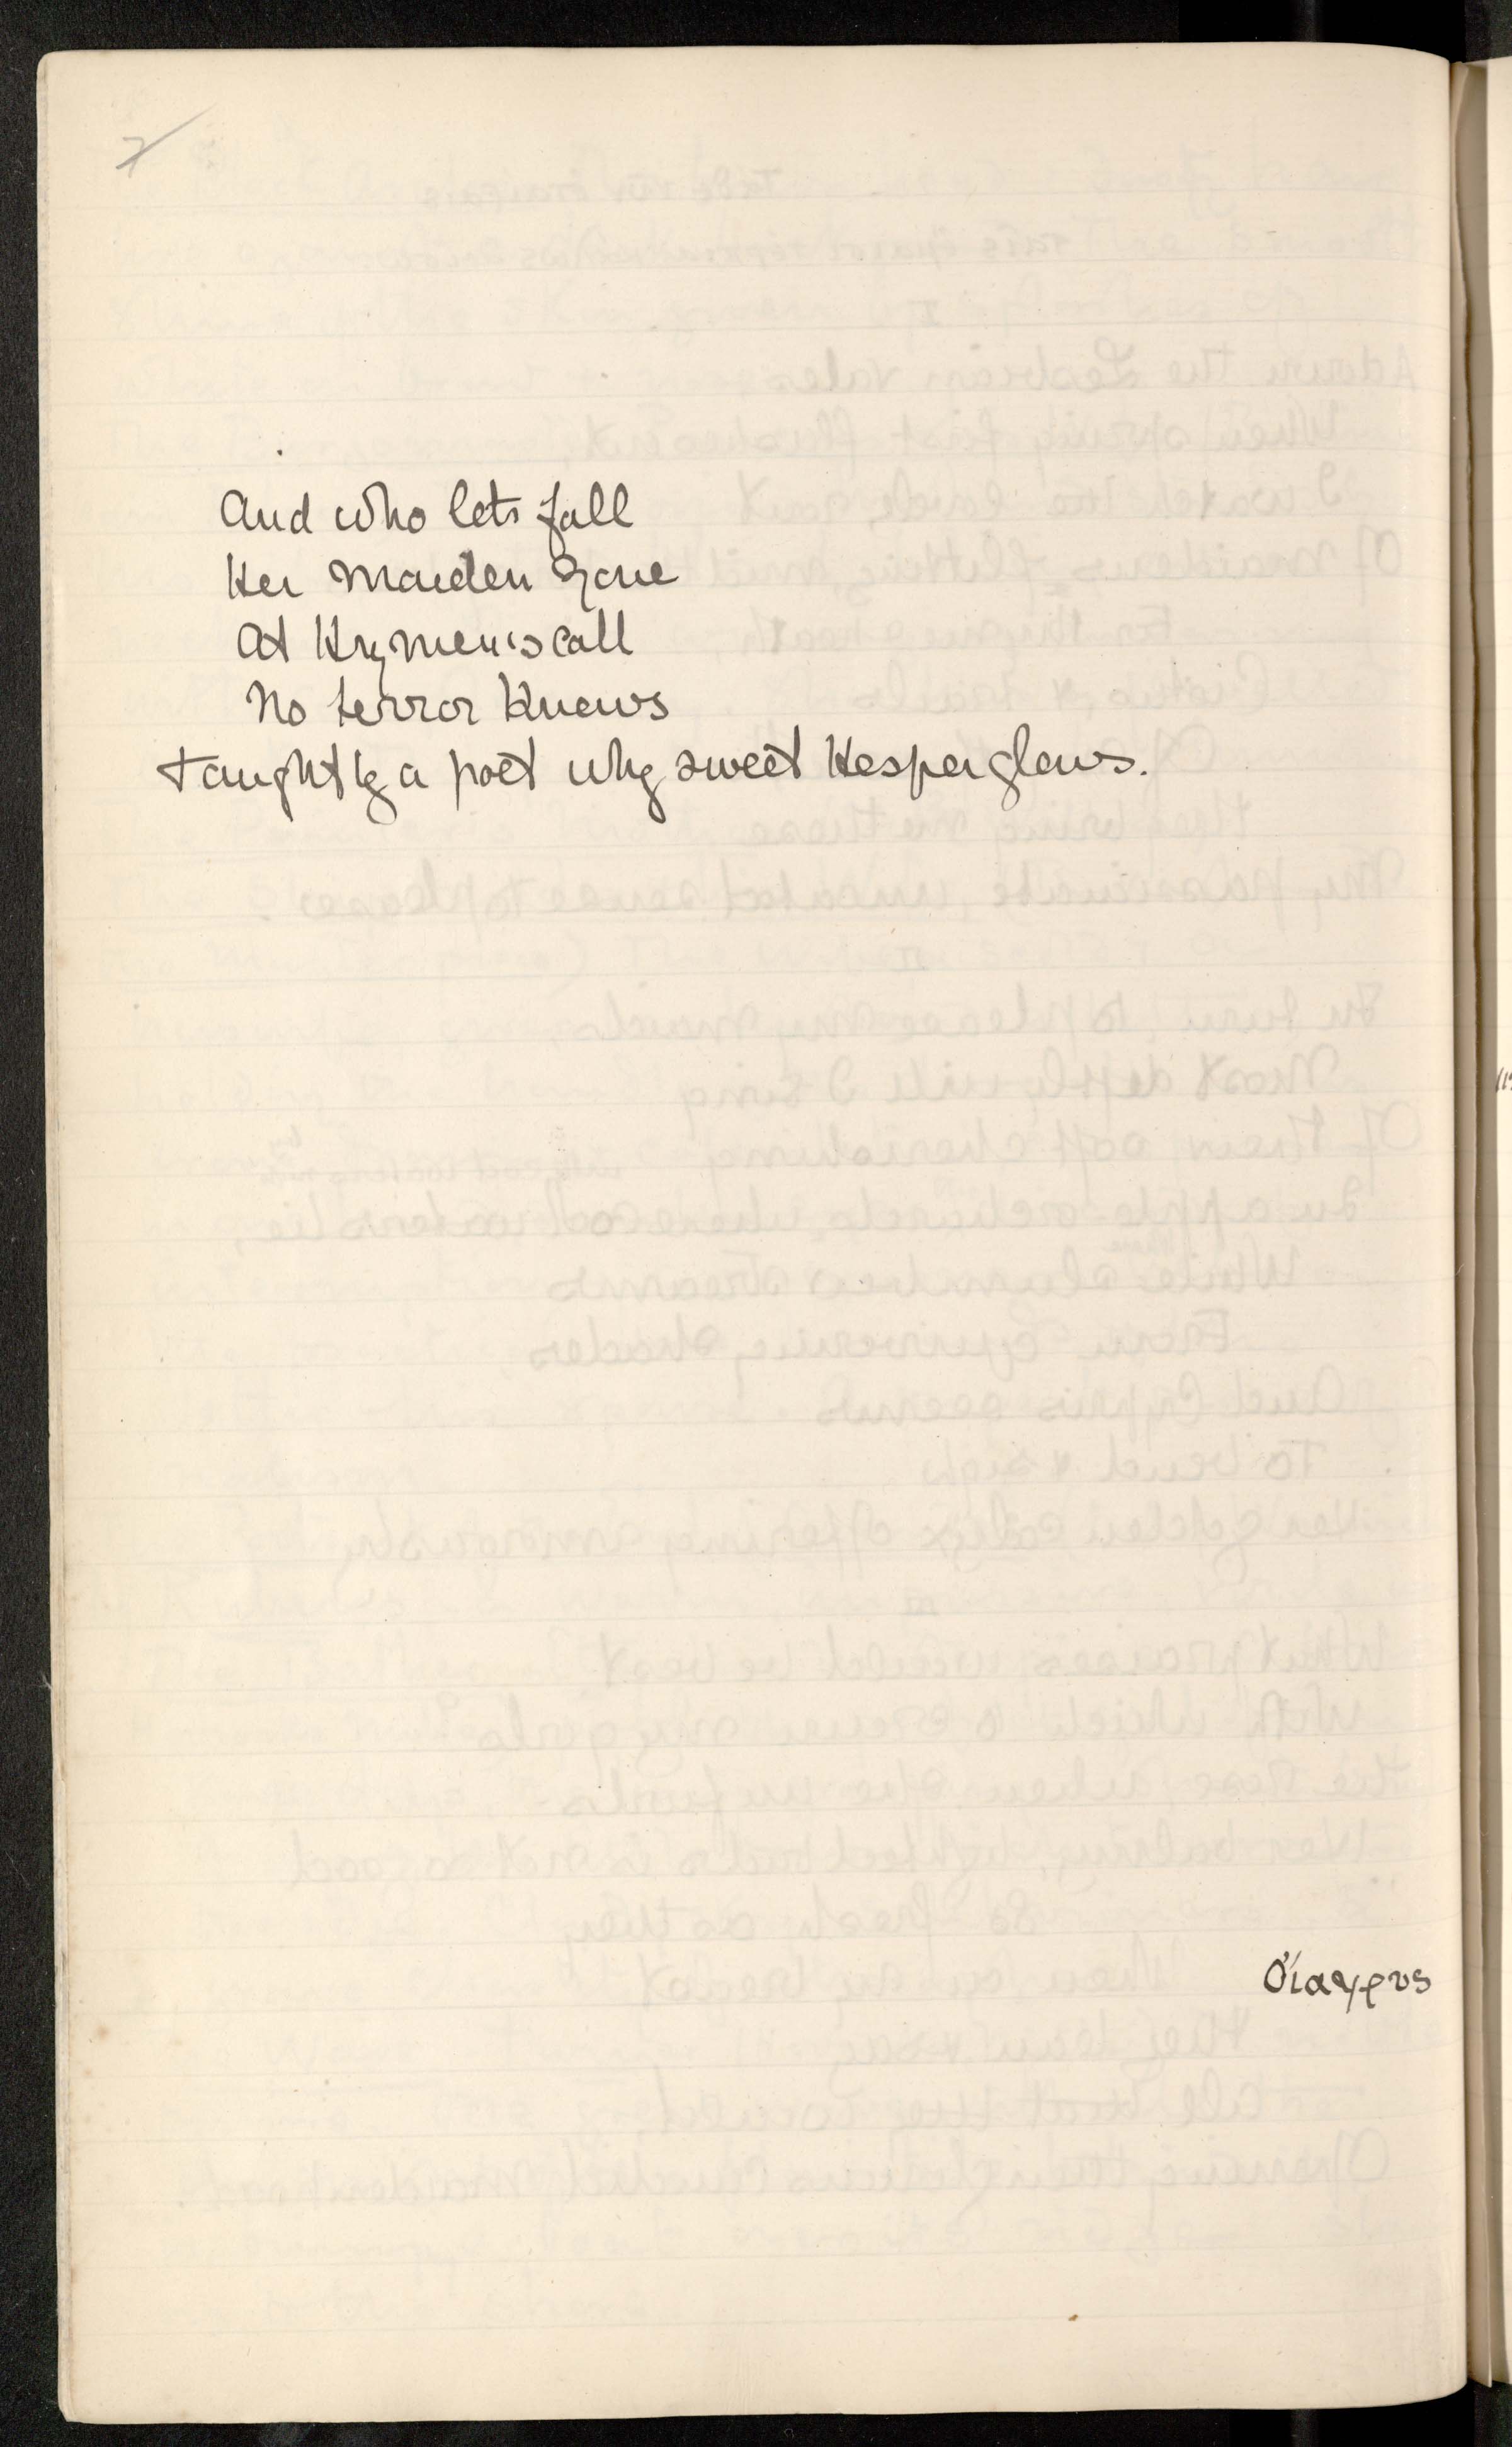 And who lets fall
Her maiden zone
At Hymen's call
No terror knows
Taught by a poet why sweet Hesper glows.
Οἴαγρος